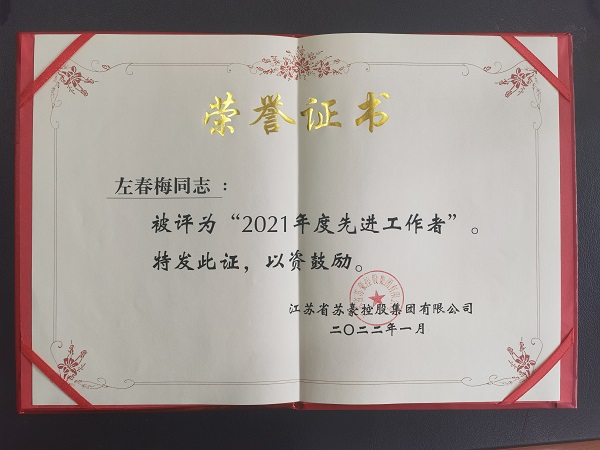 荣誉证书
左春梅同志：
被评为“2021年度先进工作者”。
特发此证，以资鼓励。
江苏省苏豪控股集团有限公司
二〇二二年一月